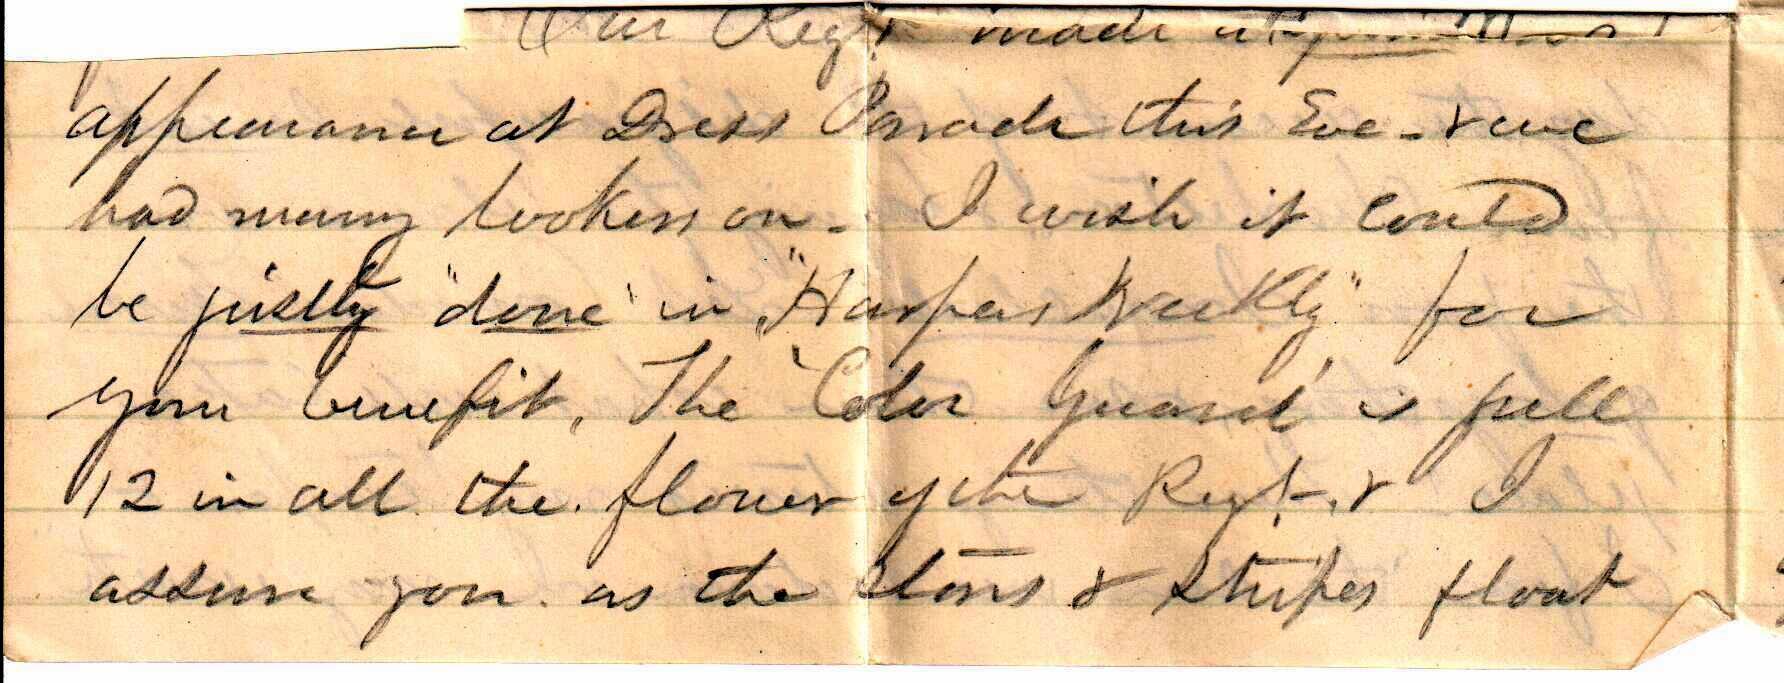 Our Regt made a
appearance at Dress Parade this Eve - & we
had many lookers on - I wish it could
be justly "done" in "Harpers Weekly" for
your benefit. The "Color Guard" is full
12 in all. the flower of the Regt. & I
assure you. as the Stars & Stripes float